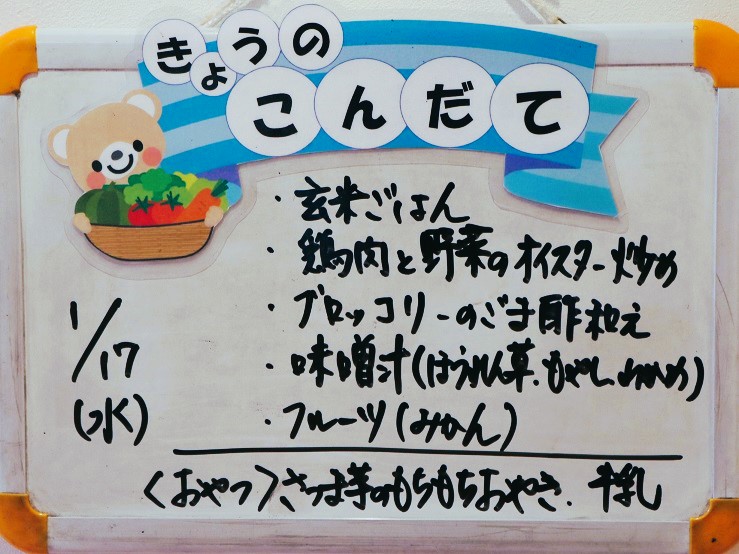 きょうの
こんだて
・玄米ごはん
・鶏肉と野菜のオイスター炒め
・ブロッコリーのごま酢和え
・味噌汁(ほうれん草、もやし、わかめ)
・フルーツ(みかん)
1/17
(水)
〈おやつ〉さつま芋のもちもちおやき、牛乳